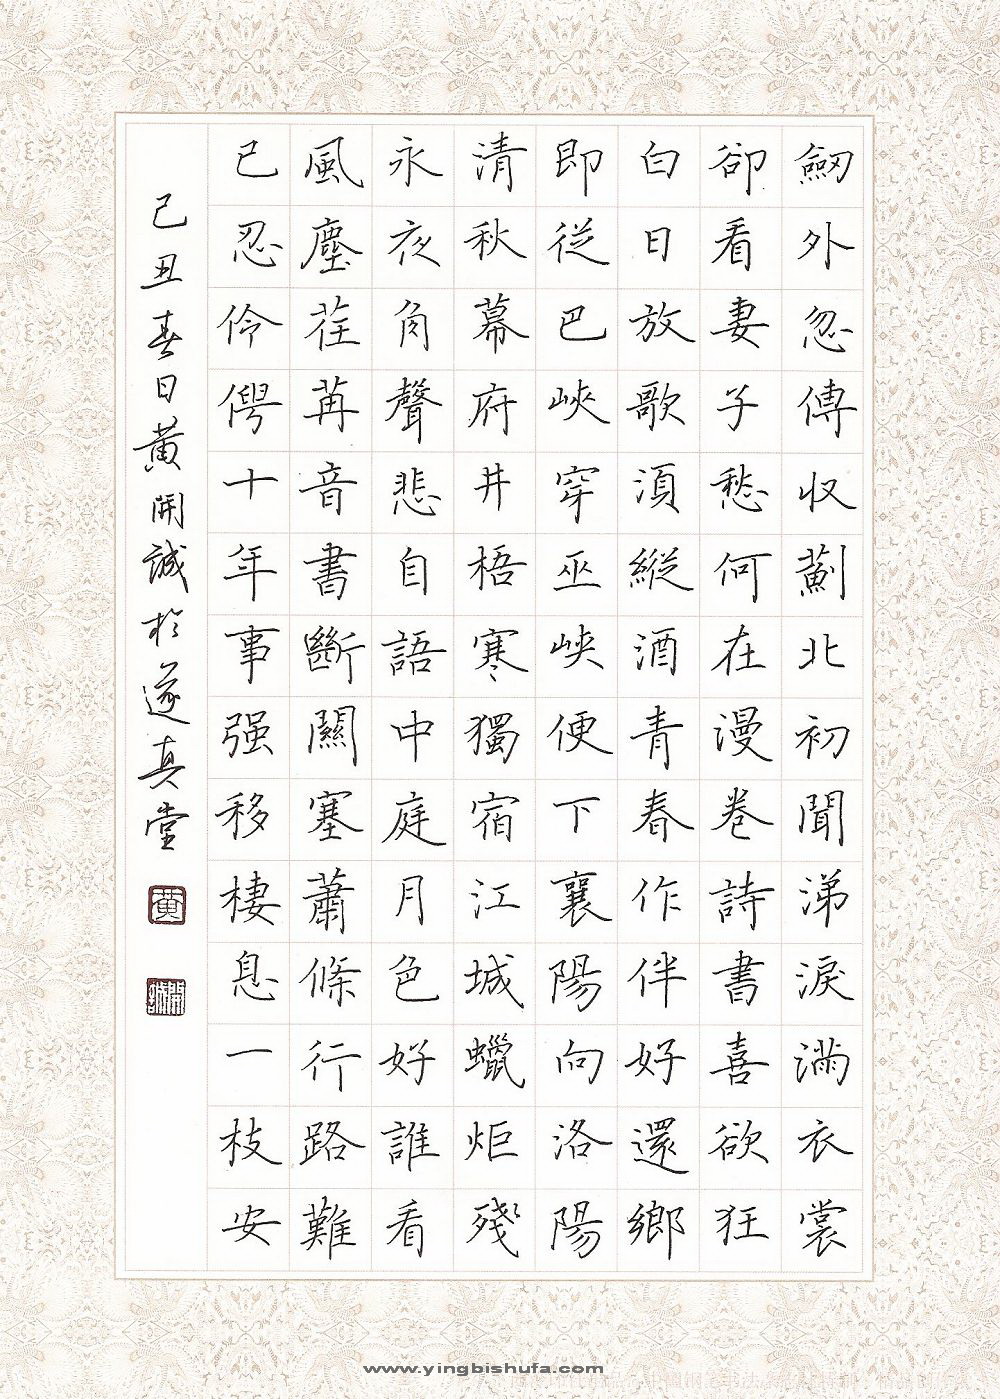 劒外忽傳收薊北初聞涕淚滿衣裳
卻看妻子愁何在漫卷詩書喜欲狂
白日放歌須縱酒青春作伴好還鄉
即從巴峽穿巫峽便下襄陽向洛陽
清秋幕府井梧寒獨宿江城蠟炬殘
永夜角聲悲自語中庭月色好誰看
風塵荏苒音書斷關塞蕭條行路難
已忍伶俜十年事强移棲息一枝安
己丑春日黄開誠於遂真堂
黄
開誠
www.yingbishufa.com